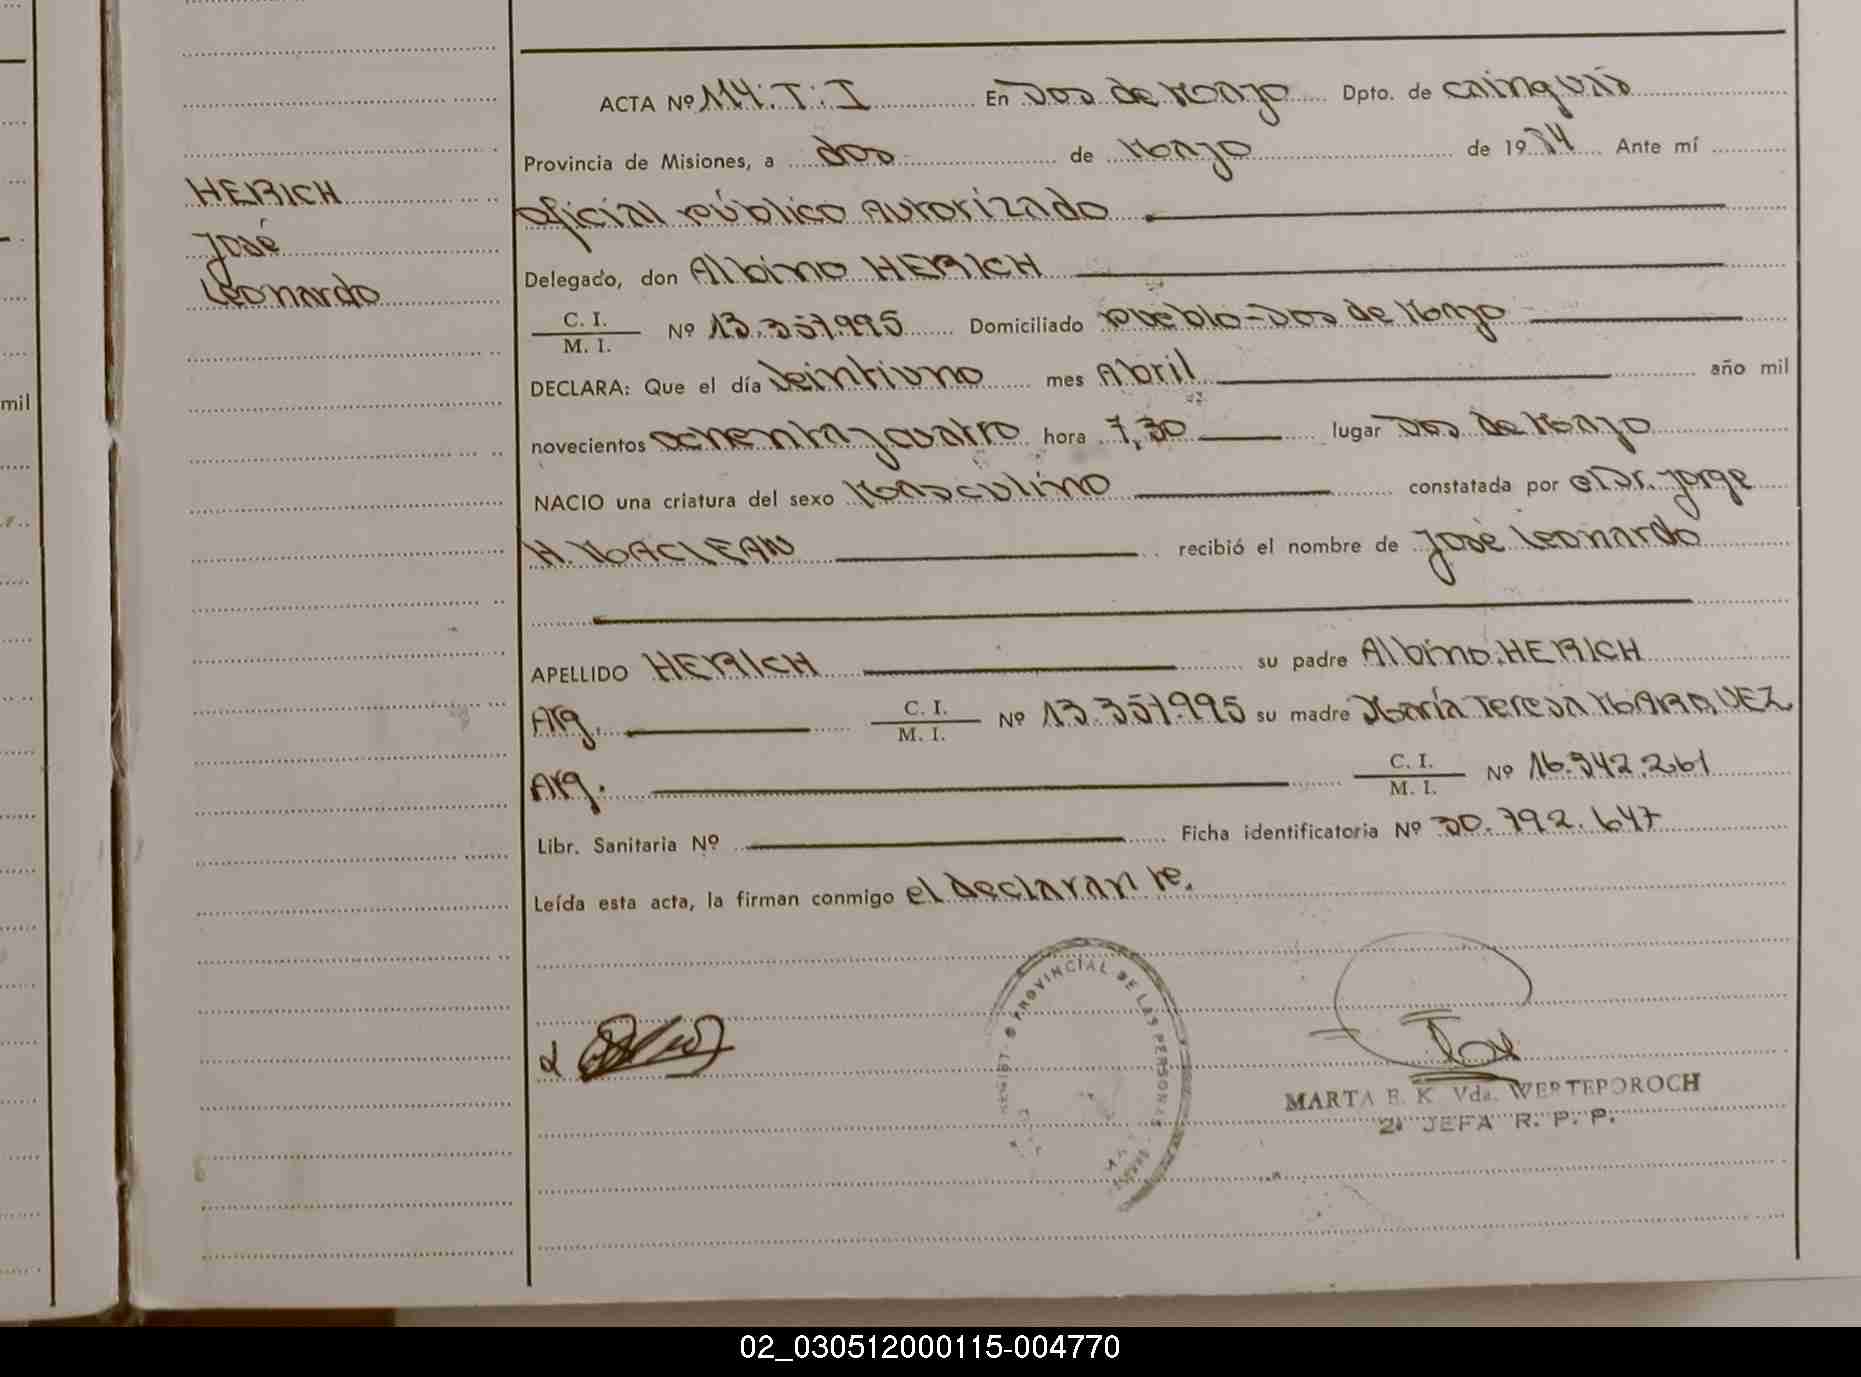 mil
HERICH
José
Leonardo
ACTA Nº 114.T:I En Dos de Mayo Dpto. de Cainguás
Provincia de Misiones, a dos de Mayo de 1984 Ante mí
oficial público Autorizado
Delegado, don Albino HERICH
C. I.
M. I. Nº 13.351.995 Domiciliado Pueblo-Dos de Mayo
DECLARA: Que el día Veintiuno mes Abril año mil
novecientos ochenta y cuatro hora 7,30 lugar Dos de Mayo
NACIO una criatura del sexo Masculino constatada por el Dr. Jorge
H. MACLEAN recibió el nombre de José Leonardo
APELLIDO HERICH su padre Albino HERICH
Arg. C. I.
M. I. Nº 13.351.995 su madre María Teresa MARQUEZ
Arg. C. I.
M. I. Nº 16.342.261
Libr. Sanitaria Nº Ficha identificatoria Nº 30.792.647
Leída esta acta, la firman conmigo el declarante.
PROVINCIAL DE LAS PERSONAS
MARTA E. K Vda. WERTEPOROCH
2ª JEFA R. P. P.
02_030512000115-004770